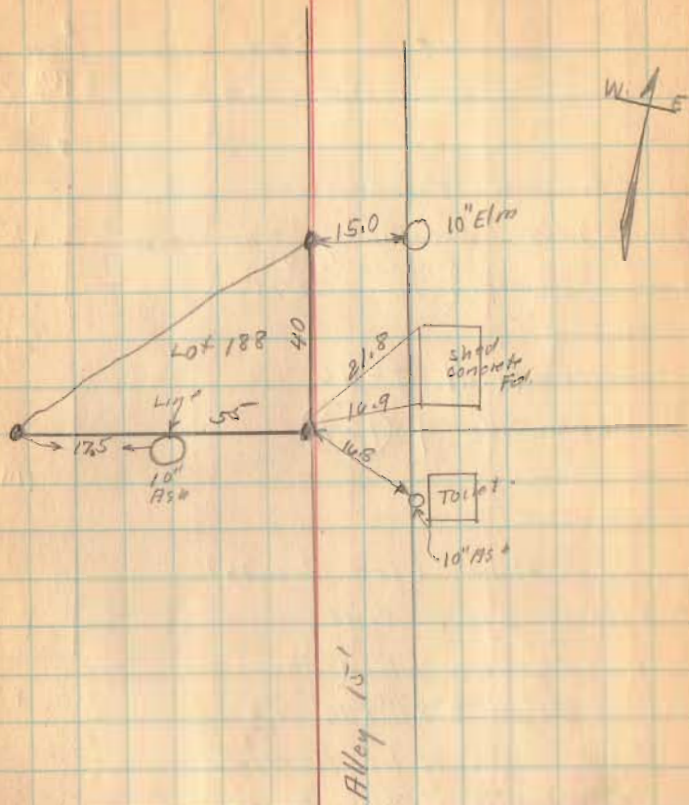 W. E
15.0
10" Elm
Lot 188
40
21.8
shed
concrete
Fd.
14.9
Line
55
17.5
10"
Ash
14.8
Toilet
10" Ash
Alley 15'